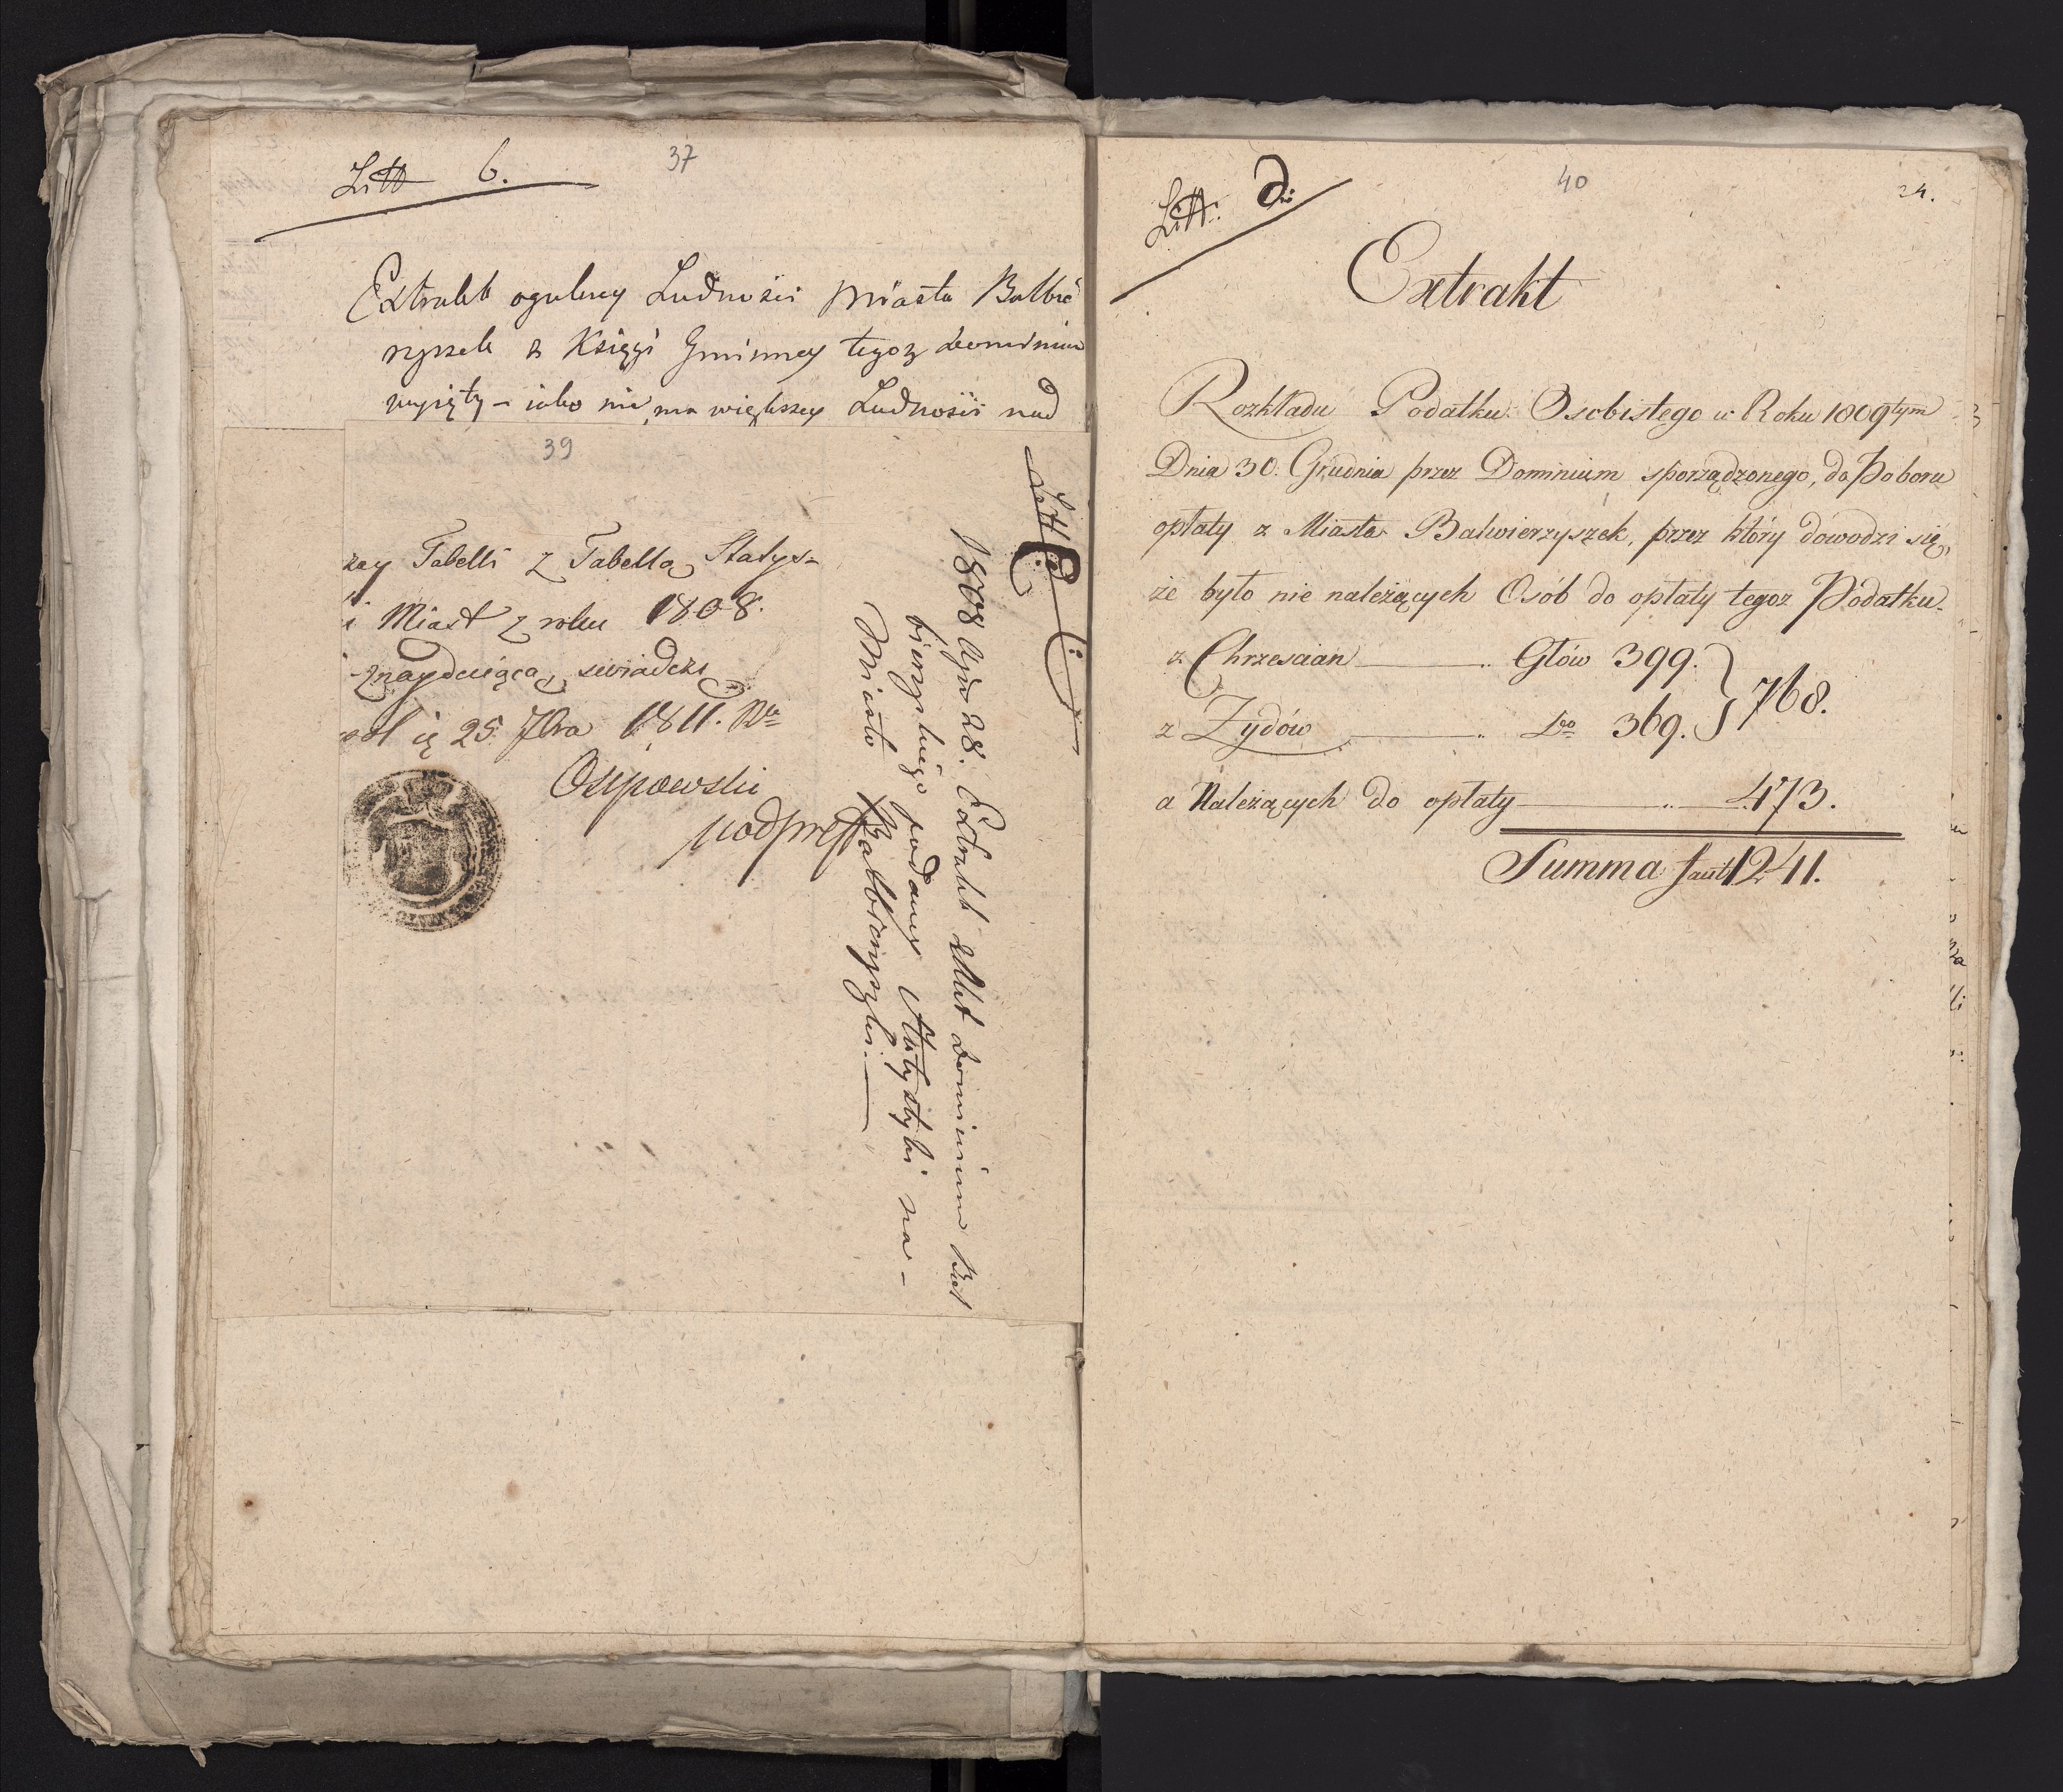 Litt b.
37
Extrakt ogulney Ludności Miasta Balbie
ryszek z Księgi Gminney tegoz dominium
wyięty – iako nie ma większey Ludności nad
39
zey Tabelli z Tabellą Statys-
i Miast z roku 1808.
znayduiącą, swiadczę
25 7bra 1811. Rku
Osypowski
podpreft
Litt C:
1808 Apr 28. Extrakt dominium Bal
bieryskiego podaney Statystyki na-
Miasto Balbieryszki.
Litt: d:
40
24.
Extrakt
Rozkładu Podatku Osobistego w Roku 1809tym
Dnia 30. Grudnia przez Dominium sporządzonego, do Poboru
opłaty z Miasta Balwierzyszek, przez który dowodzi się,
że było nie należących Osób do opłaty tegoz Podatku.
z Chrzescian ———— „ Głów 399. } 768.
z Zydów ———— „ Do 369.
a Należących do opłaty ———— „ ——— 473.
Summa facit 1241.